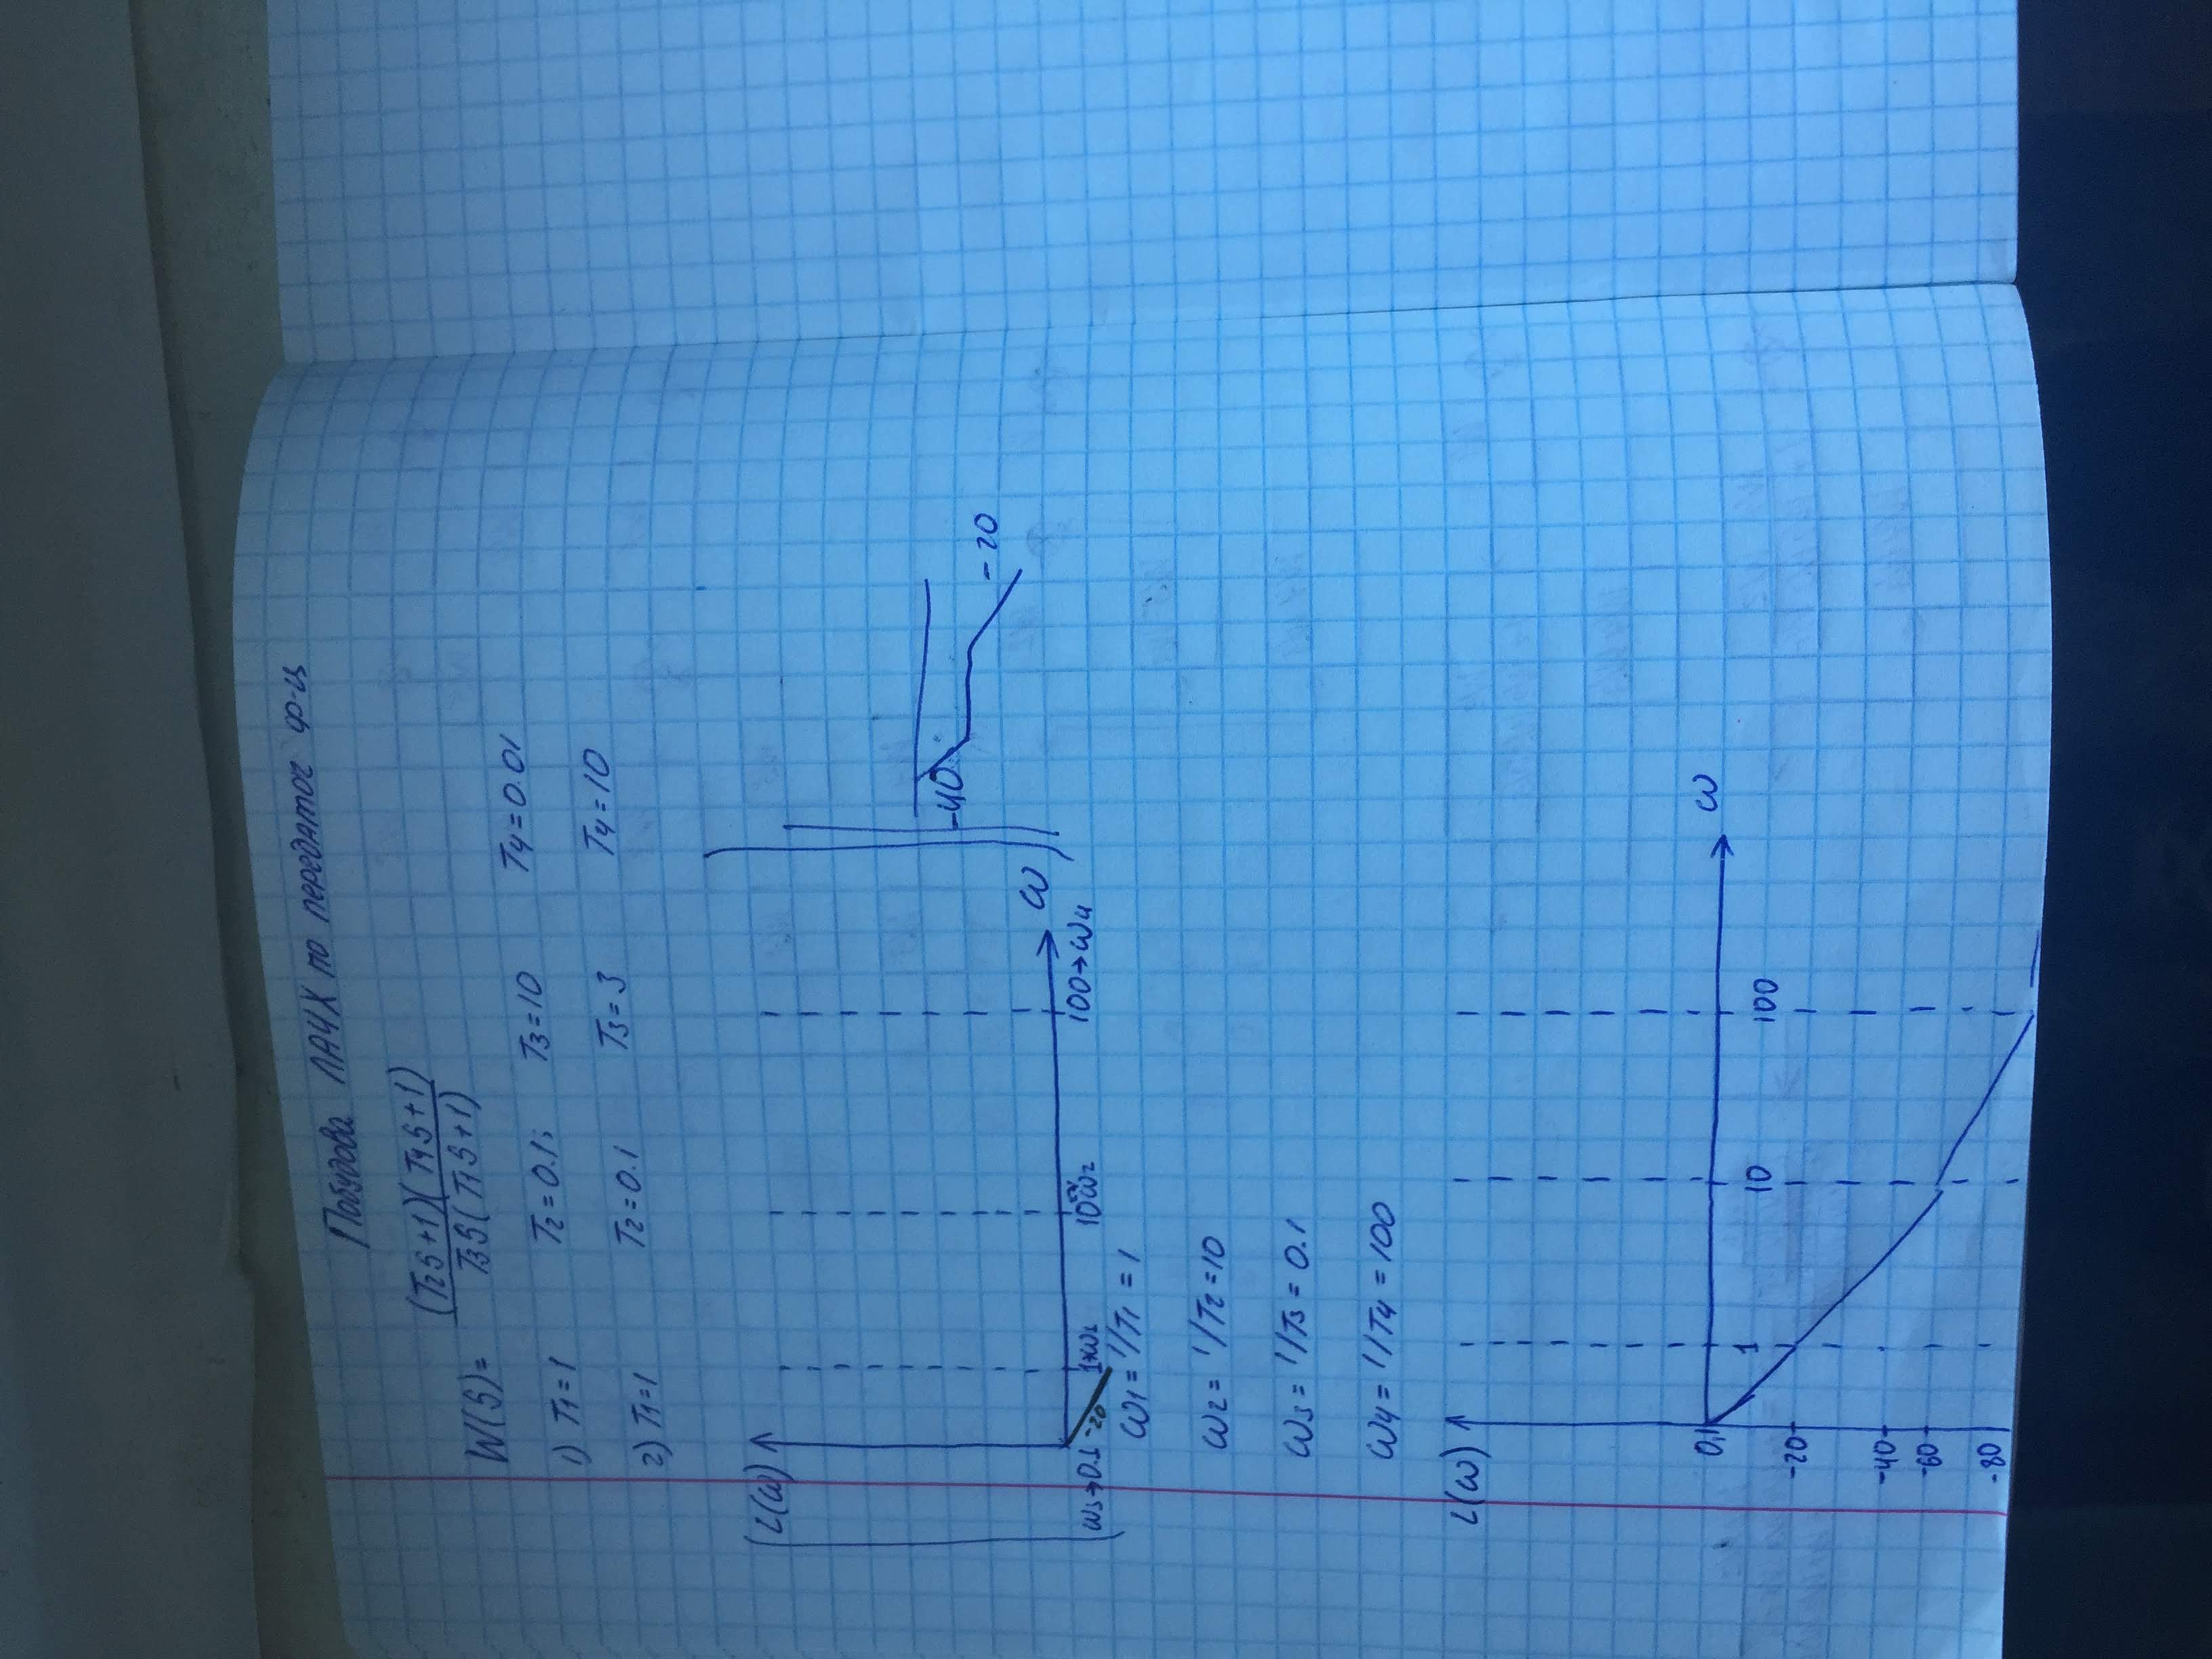 Побудова ЛАЧХ по передаточ ф-ц
W(S)= (T2S+1)(T4S+1)
T3S(T1S+1)
1) T1=1 T2=0.1; T3=10 T4=0.01
2) T1=1 T2=0.1 T3=3 T4=10
L(ω)
-40
-20
ω
ω3→0.1 -20 1→ω1 10 ω2 100→ω4
ω1= 1/T1 = 1
ω2= 1/T2=10
ω3= 1/T3= 0.1
ω4= 1/T4 =100
L(ω)
0,1 ω
1 10 100
-20
-40
-60
-80